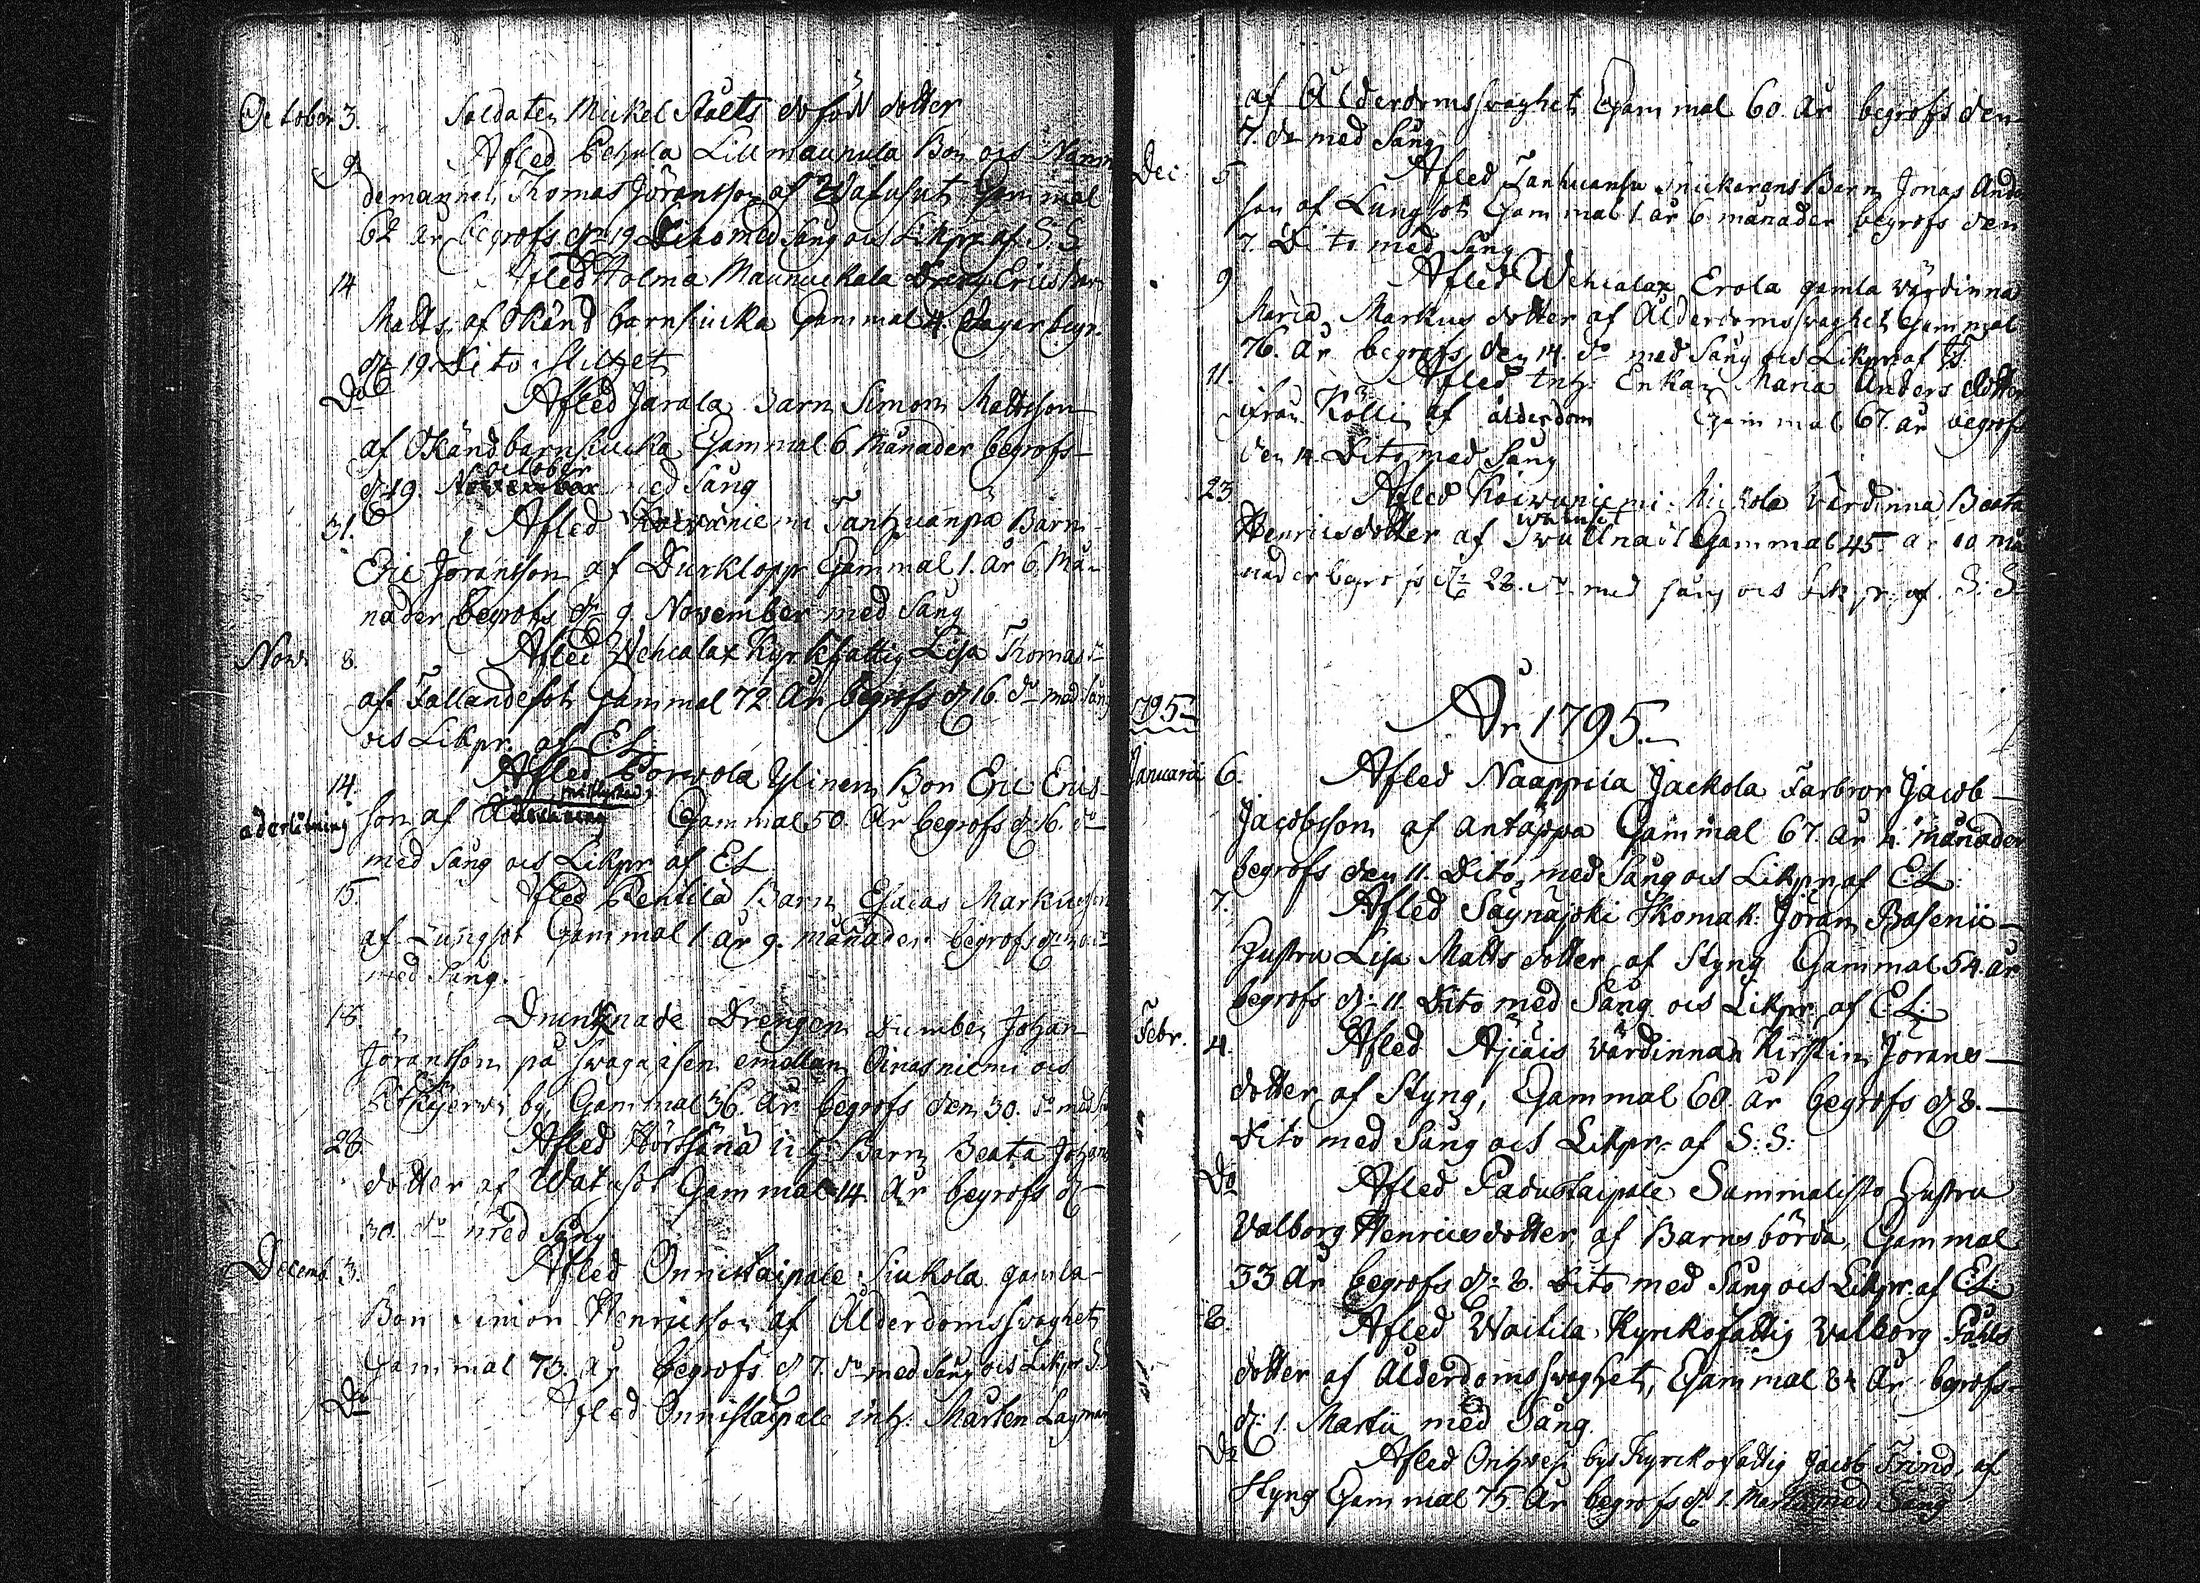 October 3. Soldaten Mickel Stålts dödfödd dotter
9. Afled Pehula Lillmaunula Bon ocs Näm
demannen Thomas Jöransson af Watusut Gammal
62 år begrofs dn 19 Dito med Sång ocs Likpr. af S:S
14 Afled Holma Maunuckala Dräng Erics barn
Matts af Okänd barnsiucka Gammal 4. Dagar begr.
dn 19 Dito
Do Afled Jarala Barn Simon Mattsson
af Okänd barnsiucka Gammal 6 Månader begrofs
d. 19. October med Sång
31. Afled Koiwuniemi Tanhuanpä Barn
Eric Jöransson af Durklopp Gammal 1. år 6. Må-
nader begrofs dn 9 November med Sång
Nov. 8. Afled Wehcalax Kyrkfattig Lisa Thomas d:r
af Fallandesot Gammal 72. År begrofs d 16. do med Sång
ocs Likpr. af EL
14. Afled Porwola Ylinen Bon Eric Erics-
aderlåtning son af misslyckad Gammal 50. År begrofs d. 16. do
med Sång ocs Likpr af EL
15. Afled Pentilä Barn Esaias Markusson
af Lungsot Gammal 1. år 9. månader begrofs dn
med Sång.
18 Drunknade Drengen Johan
Jöransson på swaga isen emellan Oinasniemi ocs
by, Gammal 36. År begrofs den 30. do med
28. Afled Hörtsänä inh: Barn Beata Johans
dotter af Watusot Gammal 14 År begrofs d
30. do med Sång
Decemb 3. Afled Onnistaipale Siukola gamla
Bon Simon Henricsson af Ålderdomsswaghet
Gammal 73. År begrofs d 7. do med Sång ocs Likpr S.S
Do Afled Onnistaipale inh: Mårten Lagman
af Ålderdomsswaghet Gammal 60. År begrofs den
7. do med Sång
Dec 5 Afled Tanhuanpä Snickarens Barn Jonas Anders
son af Lungsot Gammal 1. år 6 månader begrofs den
7. Dito med Sång
9 Afled Wehcalax Erola gamla wärdinna
Maria Markus dotter af Ålderdomsswaghet Gammal
76. År begrofs den 14. do med Sång ocs Likpr af
11. Afled inh: Enkan Maria Anders dotter
ifrån Kölli af ålderdom Gammal 67. år begrofs
den 14 Dito med Sång
23 Afled Koiwuniemi Mickola Wärdinna Beata
Henricsdotter af Swullnad Gammal 45 år 10 må
nader begrofs dn 28. do med sång ocs Likpr: af S:S
År 1795.
1795
Januarii 6. Afled Naappila Jackola Farbror Jacob
Jacobsson af antäppa Gammal 67. År 4. månader
begrofs den 11. Dito, med Sång ocs Likpr af EL:
7. Afled Säynäjoki Skomak: Jöran Basenii
Hustru Lisa Matts dotter af Styng Gammal 54. år
begrofs dn 11 Dito med Sång ocs Likpr af EL:
Febr. 4. Afled Äijäis Wärdinnan Kirstin Jörans
dotter af Styng, Gammal 60 år begrofs d 8.
Dito med Sång ocs Likpr: af S:S:
Do Afled Padustaipale Sammalisto Hustru
Valborg Henricsdotter af Barnsbörda, Gammal
33 År begrofs d: 8. Dito med Sång ocs Likpr: af EL
8. Afled Wachila Kyrckofattig Walborg Påhls
dotter af Ålderdomsswaghet, Gammal 84 År begrofs
d: 1. Martii med Sång.
Do Afled Onhwesi bys Kyrckofattig Jacob Frind, af
Styng Gammal 75 År begrofs d: 1. Martii med Sång